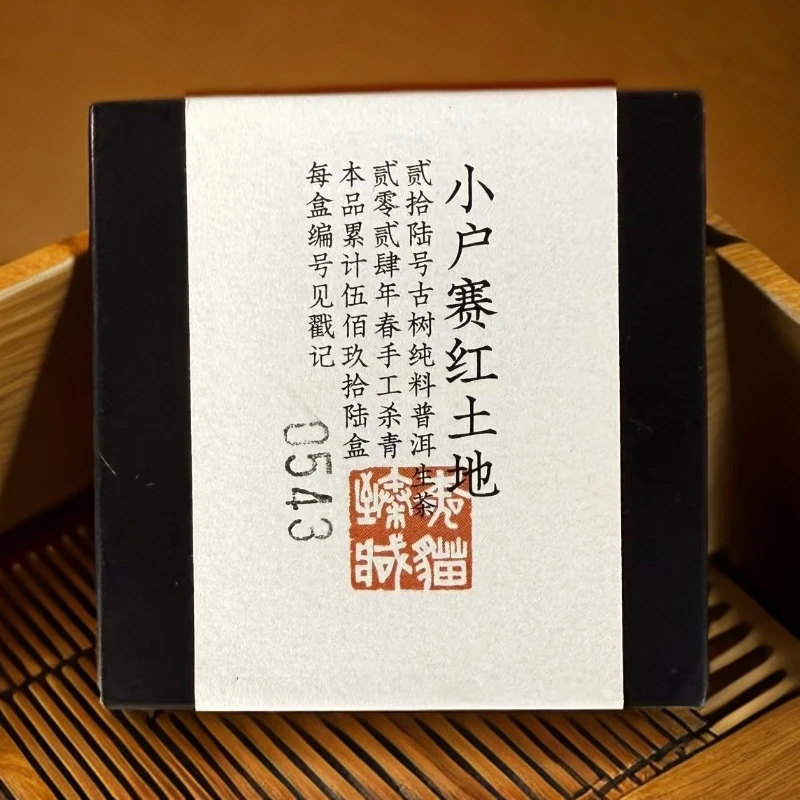 小户赛红土地
贰拾陆号古树纯料普洱生茶
贰零贰肆年春手工杀青
本品累计伍佰玖拾陆盒
每盒编号见戳记
0543